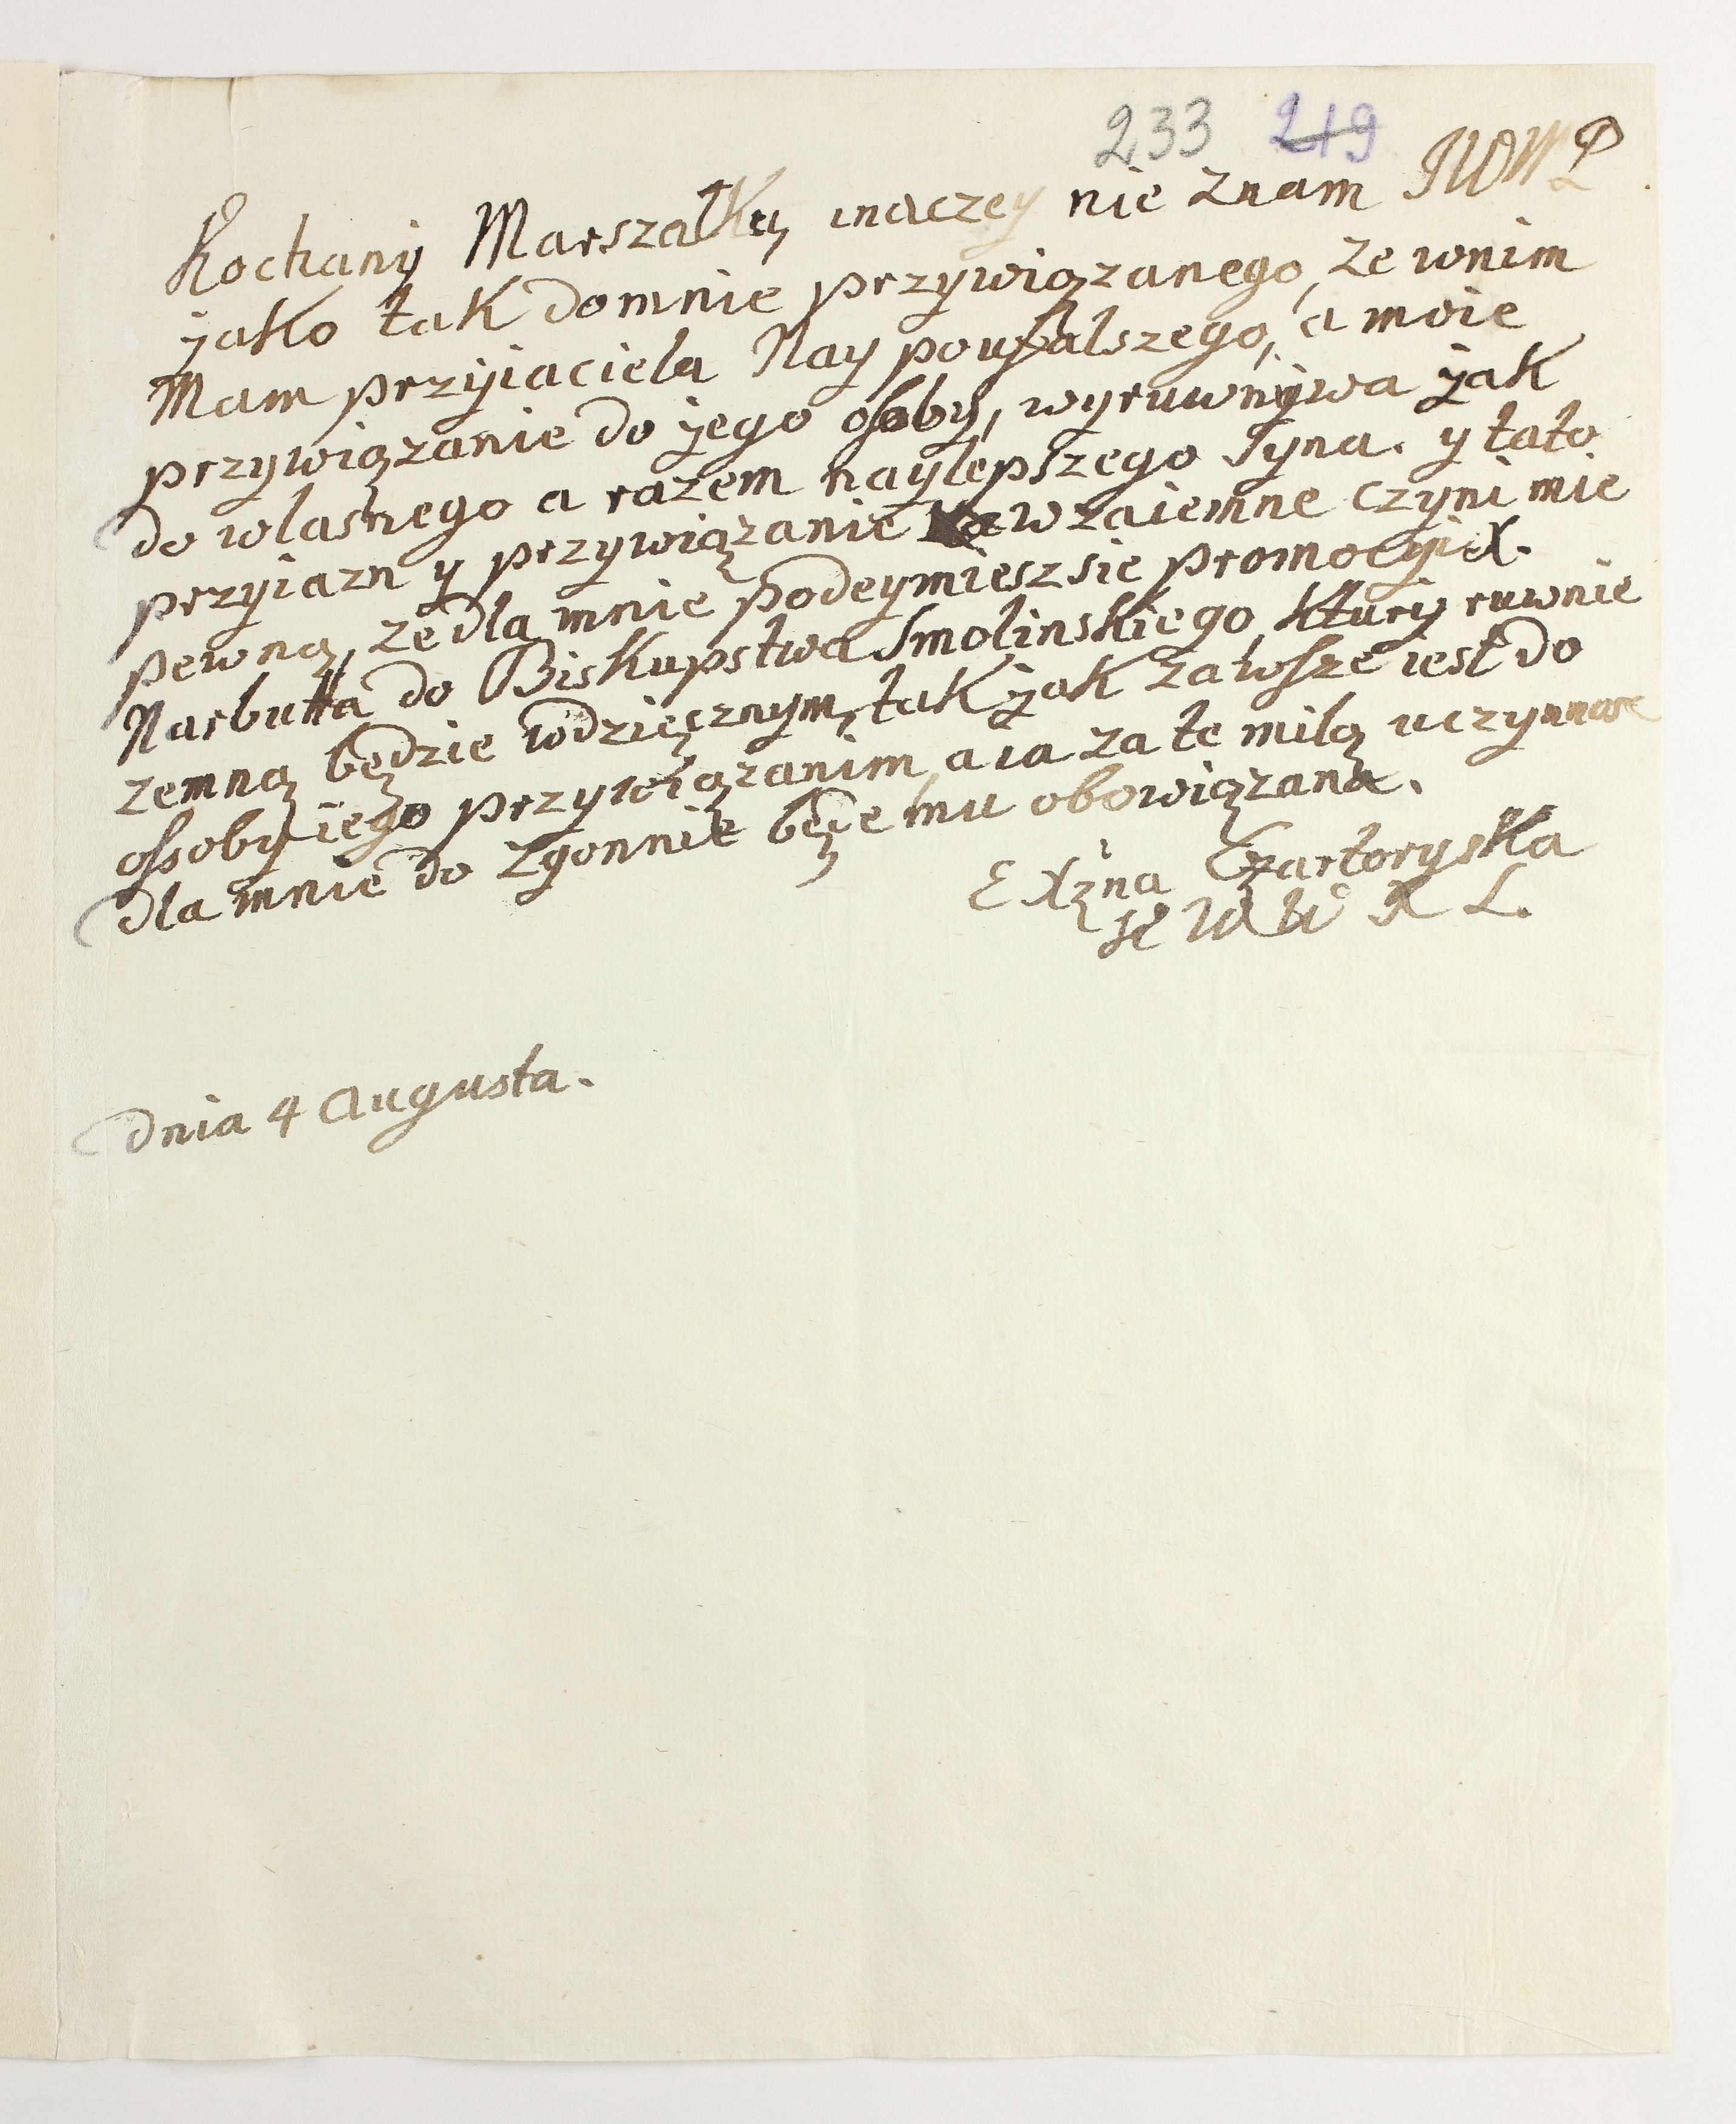 233 219
Kochany Marszałku, inaczey nie znam JWWP
jako tak domnie przywiązanego, ze wnim
Mam przyiaciela Nay poufalszego, a moie
przywiązanie do jego osoby, wyruwnywa jak
do wlasnego a razem naylepszego Syna. y tato
przyiazn y przywiązanie wzaiemne czyni mie
pewną, ze dla mnie podeymiesz sie promocyi X.
Narbutta do Biskupstwa Smolinskiego, ktury ruwnie
zemną będzie wdzięcznym, tak jak zawsze iest do
osoby iego przywiązanim, a ia za te milą uczynnosc
dla mnie do zgonnie będe mu obowiązana.
E Xżna Czartoryska
K W W X L.
dnia 4 Augusta.